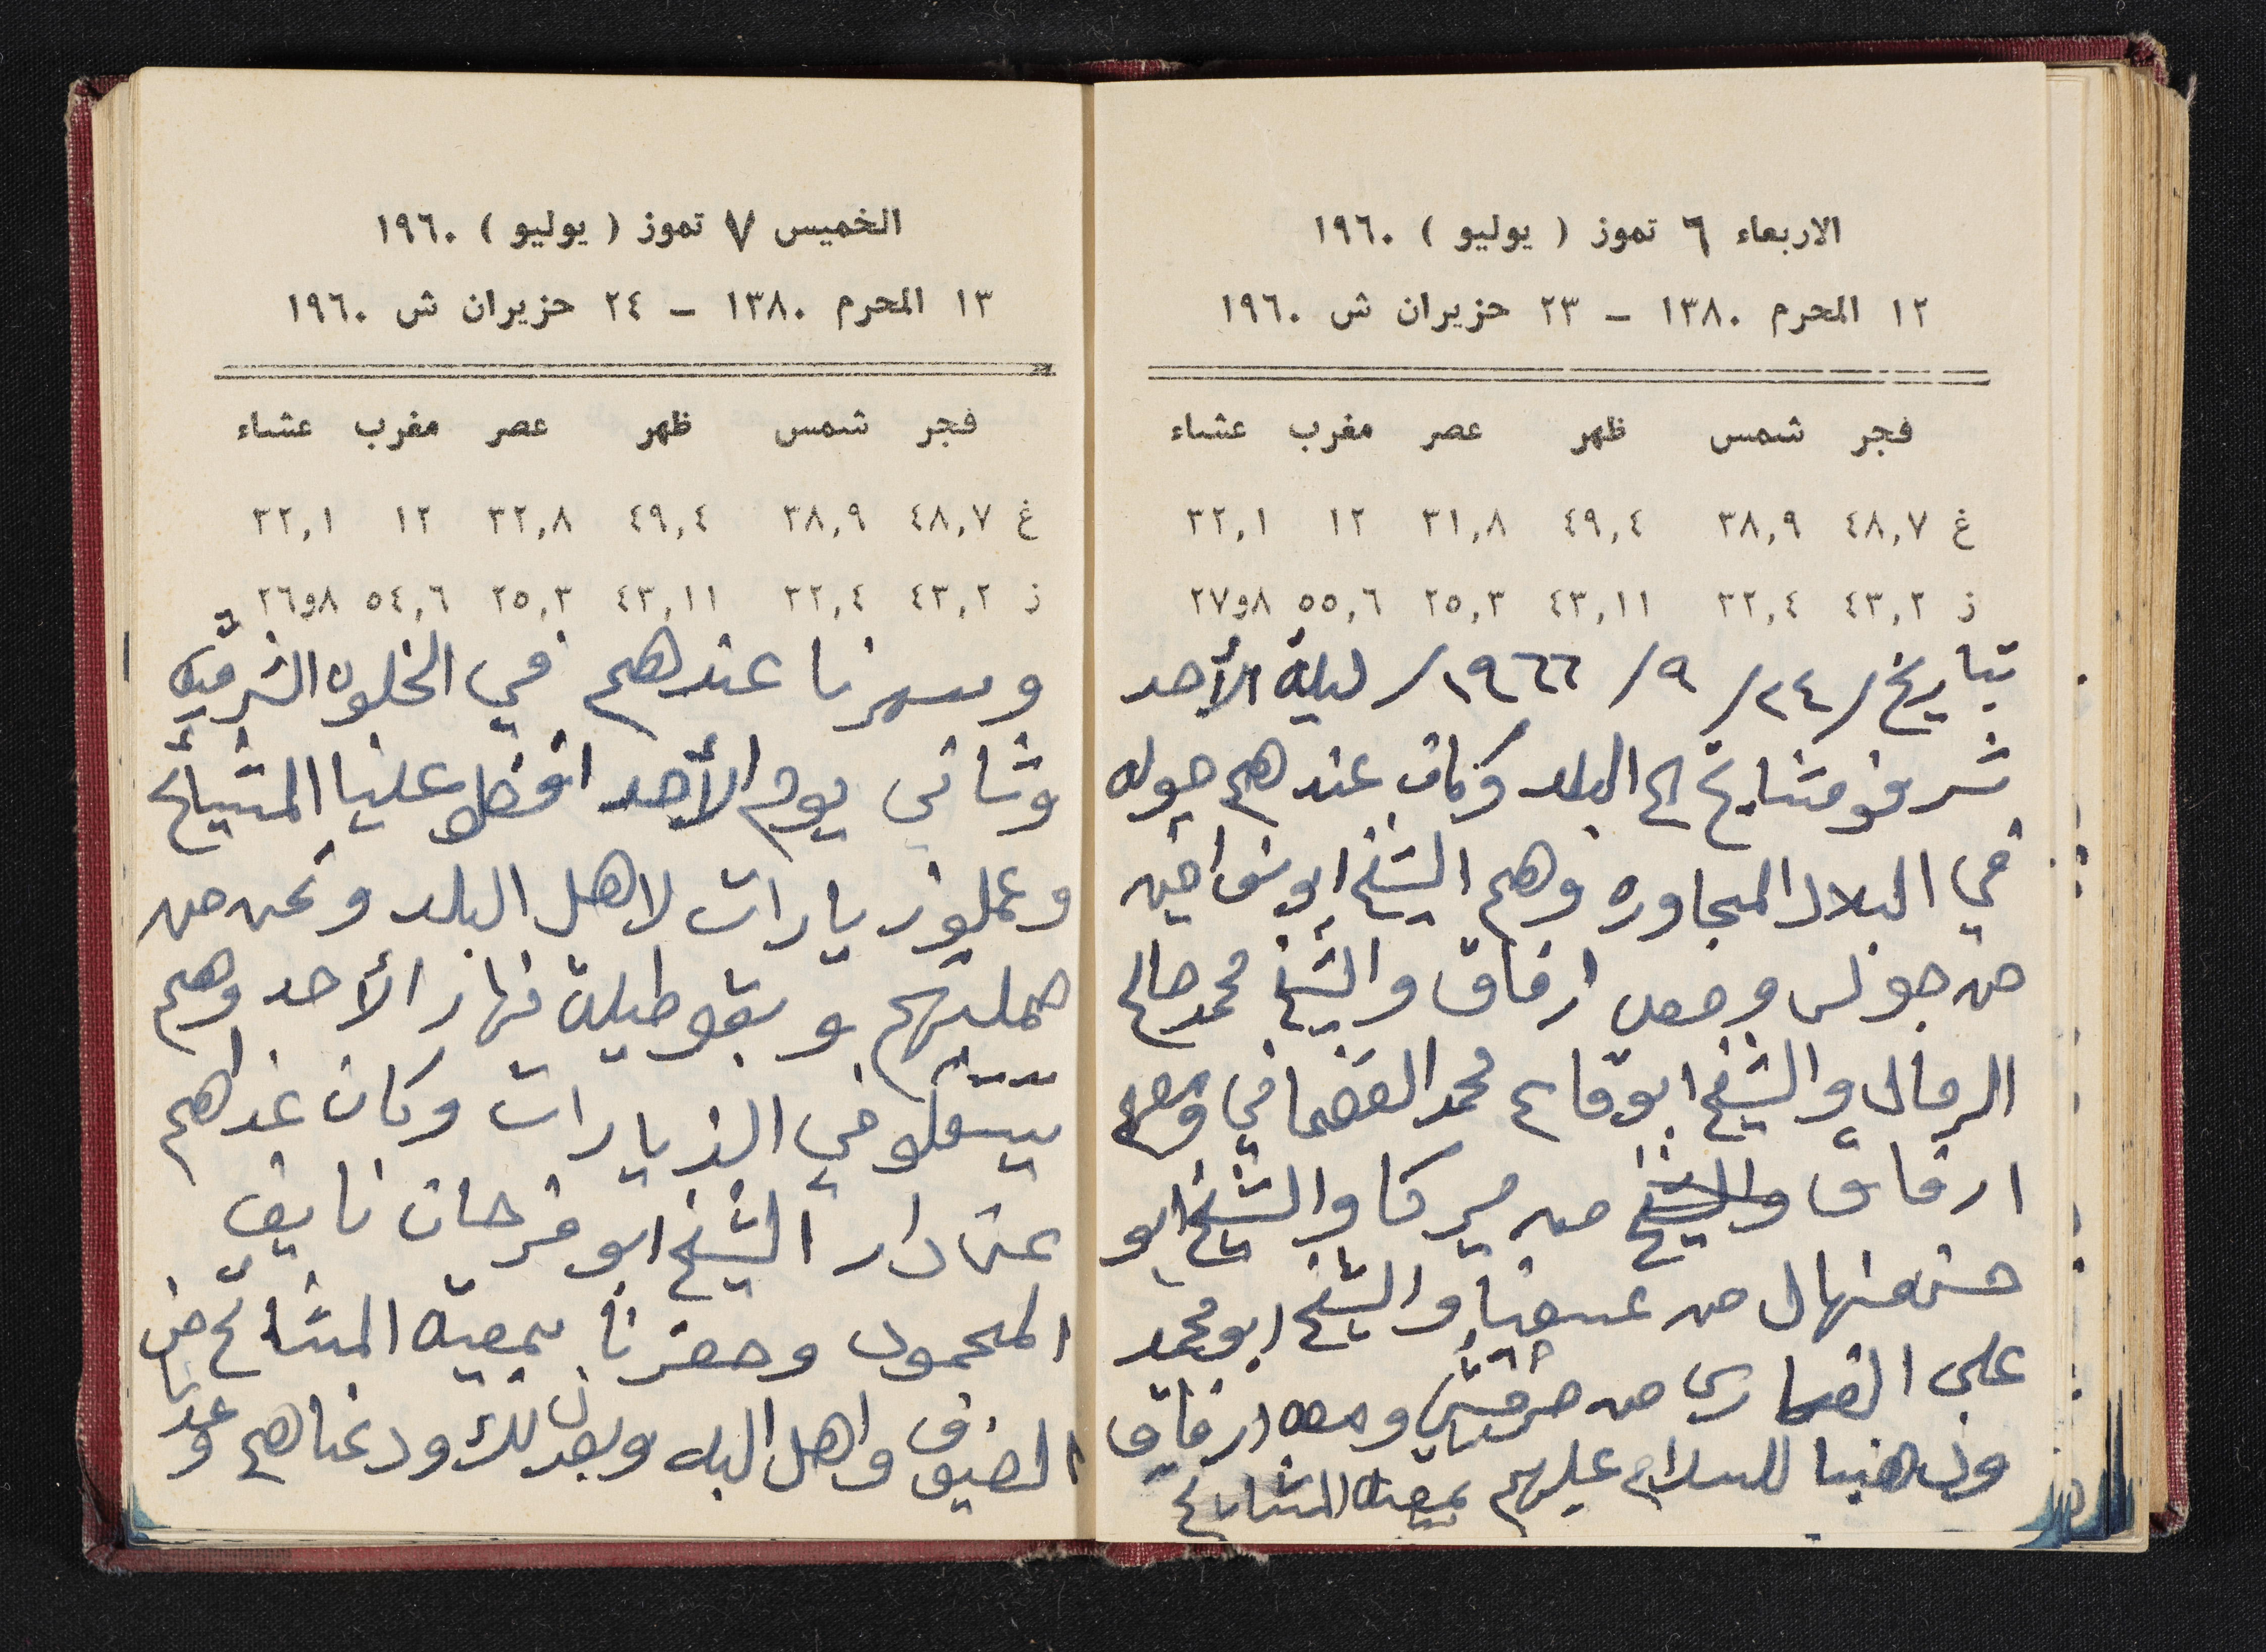 الاربعاء ٦ تموز ( يوليو ) ١٩٦٠
١٢ المحرم ١٣٨٠ – ٢٣ حزيران ش ١٩٦٠
فجر شمس ظهر عصر مغرب عشاء
غ ٤٨,٧ ٣٨,٩ ٤٩,٤ ٣١,٨ ١٢ ٣٢,١
ز ٤٣,٢ ٣٢,٤ ٤٣,١١ ٢٥,٣ ٥٥,٦ ٨و٢٧
تباريخ /٢٤/ ٩/ ١٩٦٦/ ليلة الأحد
شرفو مشايخ الى البلد وكان عندهم جوله
في البلاد المجاوره وهم الشيخ ابو
من جولس ومعه ارفاق والشيخ محمد صالح
الرمال والشيخ ابو محمد القضماني ومعه
ارفاق والشيخ من يركا والشيخ ابو
حسن منهال من عسفيا والشيخ ابو محمد
علي من حرفيش ومعه ارفاق
وذهبنا للسلام عليهم بمعية المشايخ
الخميس ٧ تموز ( يوليو ) ١٩٦٠
١٣ المحرم ١٣٨٠ – ٢٤ حزيران ش ١٩٦٠
فجر شمس ظهر عصر مغرب عشاء
غ ٤٨,٧ ٣٨,٩ ٤٩,٤ ٣٢,٨ ١٢ ٣٢,١
ز ٤٣,٢ ٣٢,٤ ٤٣,١١ ٢٥,٣ ٥٤,٦ ٨و٢٦
وسهرنا عندهم في الخلوه الشرقيه
وثاني يوم الأحد علينا المشيائخ
وعملو زيارات لاهل البلد ونحن من
جملتهم وبقو طيلة نهار الأحد وهم
في الزيارات وكان غداهم
عند دار الشيخ ابو فرحان نايف
المحمود وحضرنا بمعية المشائخ من
الضيوف واهل البلد وبعد ذلك ودعناهم وعدنا